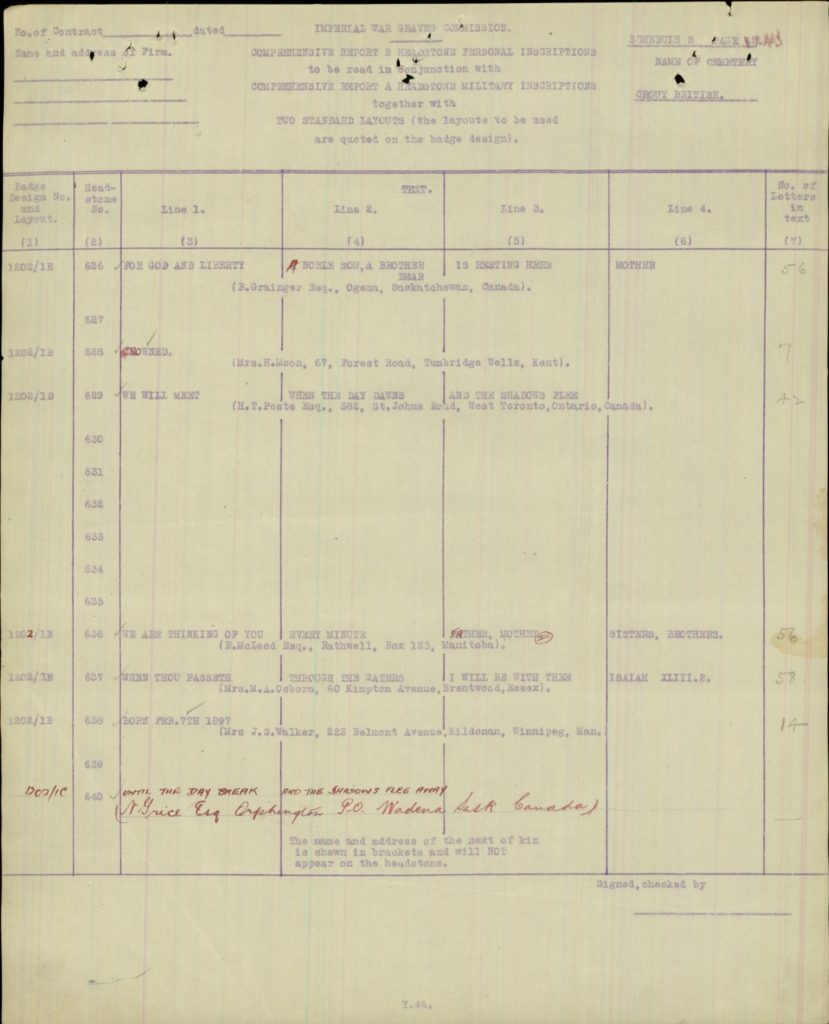 No. of Contract dated
IMPERIAL WAR GRAVES COMMISSION.
SCHEDULE B PAGE 43
Name and address of Firm.
COMPREHENSIVE REPORT B HEADSTONE PERSONAL INSCRIPTIONS
to be read in conjunction with
NAME OF CEMETERY
COMPREHENSIVE REPORT A HEADSTONE MILITARY INSCRIPTIONS
CROUY BRITISH.
together with
TWO STANDARD LAYOUTS (the layouts to be used
are quoted on the badge design).
Badge Design No. and Layout. Head-stone No. TEXT. No. of Letters in text
Line 1. Line 2. Line 3. Line 4.
(1) (2) (3) (4) (5) (6) (7)
1202/1E 626 FOR GOD AND LIBERTY A NOBLE SON, A BROTHER DEAR IS RESTING HERE MOTHER 56
(B.Grainger Esq., Ogema, Saskatchewan, Canada).
627
1202/1B 628 CROWNED. 7
(Mrs.H.Moon, 67, Forest Road, Tunbridge Wells, Kent).
1202/1D 629 WE WILL MEET WHEN THE DAY DAWNS AND THE SHADOWS FLEE 42
(H.T.Poste Esq., 382, St.Johns Road, West Toronto,Ontario,Canada).
630
631
632
633
634
635
1202/1E 636 WE ARE THINKING OF YOU EVERY MINUTE FATHER, MOTHER SISTERS, BROTHERS. 56
(F.McLeod Esq., Rathwell, Box 123, Manitoba).
1202/1E 637 WHEN THOU PASSETH THROUGH THE WATERS I WILL BE WITH THEE ISAIAH XLIII.2. 58
(Mrs.M.A.Osborn, 60 Kimpton Avenue,Brentwood,Essex).
1202/1B 638 BORN FEB.7TH 1897 14
(Mrs J.S.Walker, 223 Belmont Avenue,Kildonan, Winnipeg, Man.)
639
1202/1C 640 UNTIL THE DAY BREAK AND THE SHADOWS FLEE AWAY
(N. Grice Esq Orphington P.O. Wadena Sask Canada)
The name and address of the next of kin
is shewn in brackets and will NOT
appear on the headstone.
Signed,checked by
Y.46.